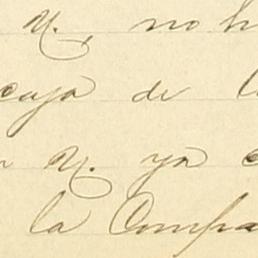 M., no h
caja de l
n M. ya c
la Compa